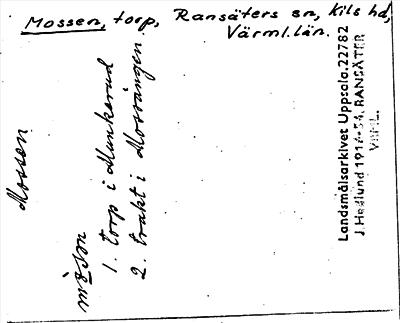 Mossen, torp, Ransäters sn, Kils hd,
Värml. län.
Mossen
1. torp i Munkerud
2. trakt i Mosvången
Landsmålsarkivet Uppsala. 22782
J. Hedlund 1914-54. RANSÄTER
VÄRML.